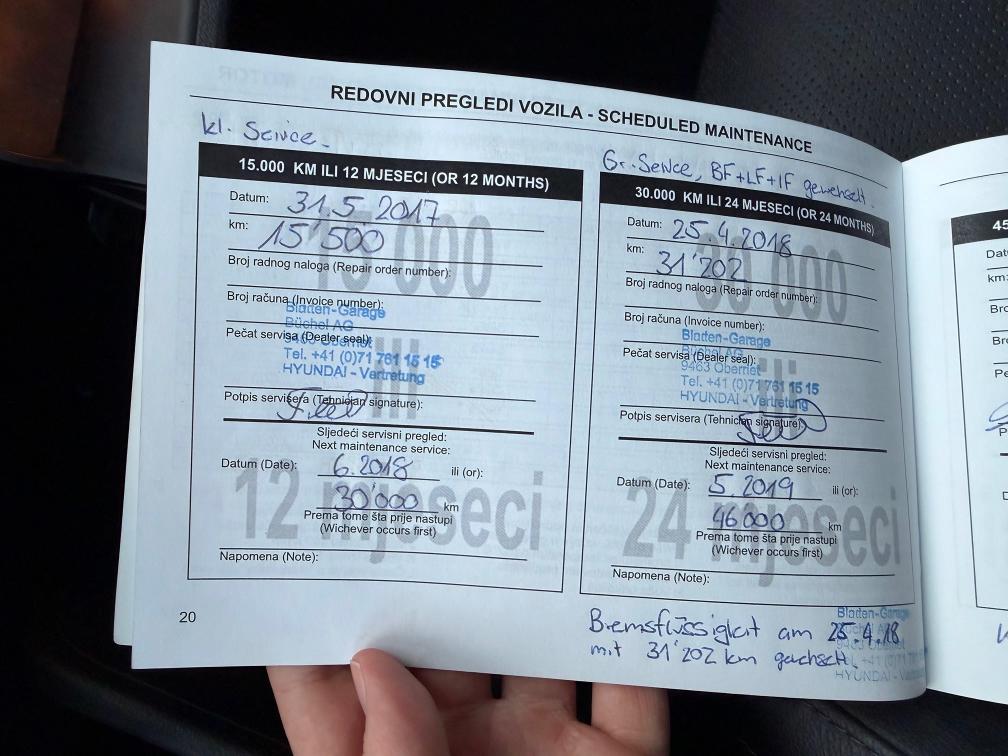 REDOVNI PREGLEDI VOZILA - SCHEDULED MAINTENANCE
kl. Service.
15.000 KM ILI 12 MJESECI (OR 12 MONTHS)
Datum: 31.5 2017
km: 15'500
15 000
Broj radnog naloga (Repair order number):
Broj računa (Invoice number):
Bladen-Garage
Büchel AG
Pečat servisa (Dealer seal):
9463 Oberriet
Tel. +41 (0)71 761 15 15
HYUNDAI - Vertretung
ili
Potpis servisera (Tehnician signature):
Sljedeći servisni pregled:
Next maintenance service:
Datum (Date): 6.2018 ili (or):
30'000 km
12 mjeseci
Prema tome šta prije nastupi
(Wichever occurs first)
Napomena (Note):
20
Gr. Service, BF+LF+IF gewechselt.
30.000 KM ILI 24 MJESECI (OR 24 MONTHS)
Datum: 25.4.2018
km: 31'202
30 000
Broj radnog naloga (Repair order number):
Broj računa (Invoice number):
Bladen-Garage
Büchel AG
Pečat servisa (Dealer seal):
9463 Oberriet
Tel. +41 (0)71 761 15 15
HYUNDAI - Vertretung
ili
Potpis servisera (Tehnician signature):
Sljedeći servisni pregled:
Next maintenance service:
Datum (Date): 5.2019 ili (or):
46000 km
24 mjeseci
Prema tome šta prije nastupi
(Wichever occurs first)
Napomena (Note):
Bremsflüssigkeit am 25.4.18
mit 31'202 km gewchselt.
Bladen-Gara
HYUNDAI - Vertretu
45
Dat
km:
Bro
Bro
Pe
P